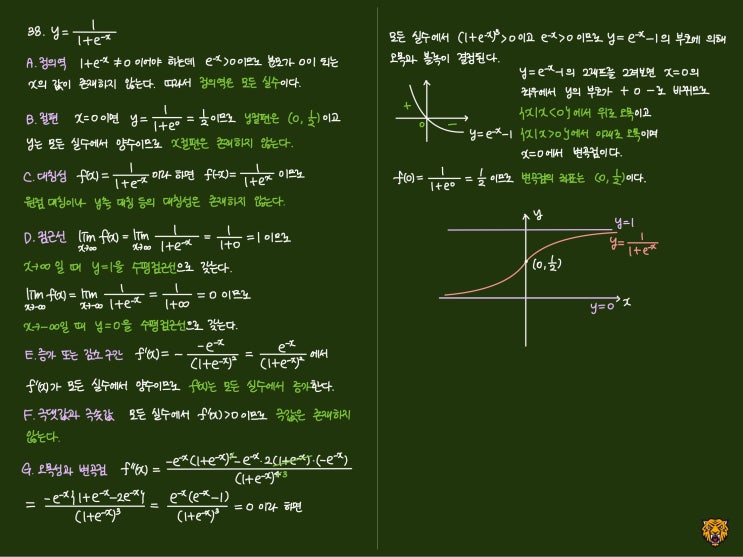 38. y = 1/(1+e^-x)
A. 정의역 1+e^-x ≠ 0 이어야 하는데 e^-x > 0 이므로 분모가 0이 되는
x의 값이 존재하지 않는다. 따라서 정의역은 모든 실수이다.
B. 절편 x=0이면 y = 1/(1+e^0) = 1/2 이므로 y절편은 (0, 1/2)이고
y는 모든 실수에서 양수이므로 x절편은 존재하지 않는다.
C. 대칭성 f(x) = 1/(1+e^-x) 이라 하면 f(-x) = 1/(1+e^x) 이므로
원점 대칭이나 y축 대칭 등의 대칭성은 존재하지 않는다.
D. 점근선 lim x→∞ f(x) = lim x→∞ 1/(1+e^-x) = 1/(1+0) = 1 이므로
x→∞ 일 때 y=1을 수평점근선으로 갖는다.
lim x→-∞ f(x) = lim x→-∞ 1/(1+e^-x) = 1/(1+∞) = 0 이므로
x→-∞일 때 y=0을 수평점근선으로 갖는다.
E. 증가 또는 감소 구간 f'(x) = - (-e^-x)/(1+e^-x)^2 = e^-x/(1+e^-x)^2 에서
f'(x)가 모든 실수에서 양수이므로 f(x)는 모든 실수에서 증가한다.
F. 극댓값과 극솟값 모든 실수에서 f'(x)>0 이므로 극값은 존재하지
않는다.
G. 오목성과 변곡점 f''(x) = (-e^-x(1+e^-x)^2 - e^-x·2(1+e^-x)·(-e^-x))/(1+e^-x)^4 3
= (-e^-x{1+e^-x-2e^-x})/(1+e^-x)^3 = (e^-x(e^-x-1))/(1+e^-x)^3 = 0 이라 하면
모든 실수에서 (1+e^-x)^3>0 이고 e^-x>0 이므로 y=e^-x-1 의 부호에 의해
오목과 볼록이 결정된다.
y=e^-x-1의 그래프를 그려보면 x=0의
좌우에서 y의 부호가 + 0 - 로 바뀌므로
{x|x<0}에서 위로 오목이고
{x|x>0}에서 아래로 오목이며
x=0에서 변곡점이다.
+
0
-
y=e^-x-1
f(0) = 1/(1+e^0) = 1/2 이므로 변곡점의 좌표는 (0, 1/2)이다.
y
y=1
y = 1/(1+e^-x)
(0, 1/2)
y=0
x